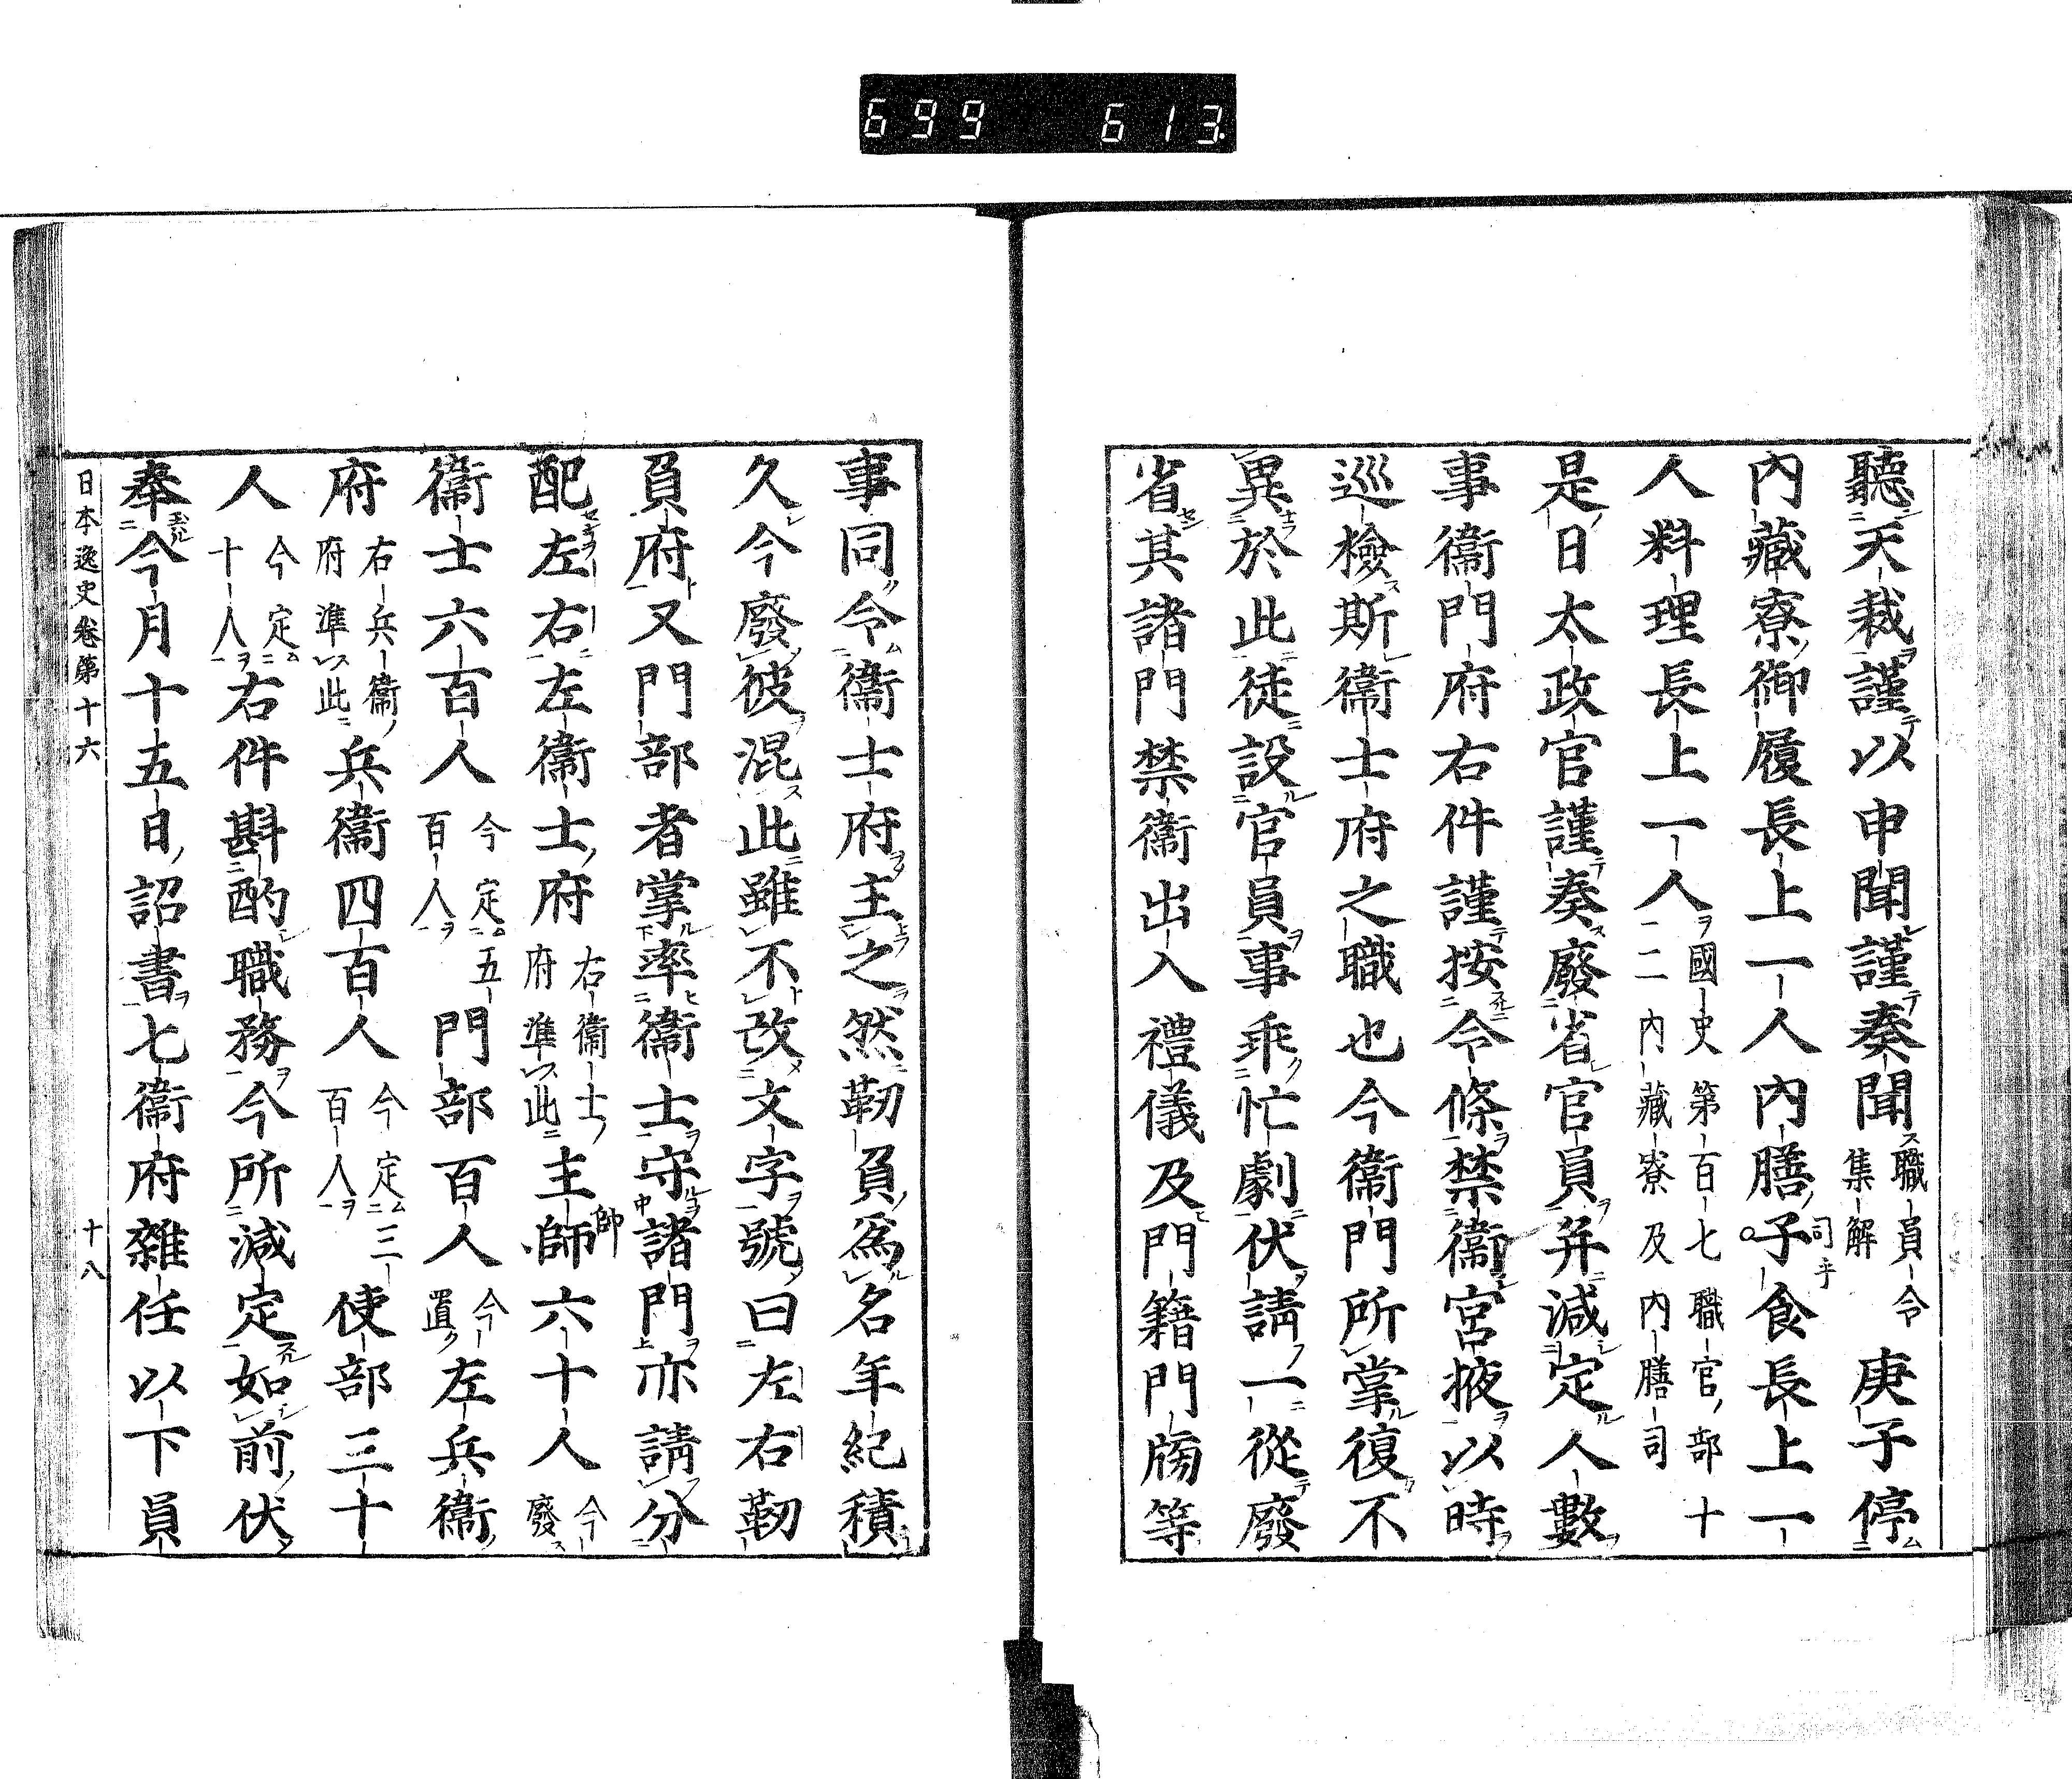 699 613
聽天裁謹以申聞謹奏聞職員令集解庚子停
內藏寮御履長上一人內膳子食長上一
司乎
人料理長上一人國史第百七職官部十二內藏寮及內膳司
是日太政官謹奏廢省官員并減定人數
事衞門府右件謹按令條禁衞宮掖以時
巡檢斯衞士府之職也今衞門所掌復不
異於此徒設官員事乖忙劇伏請一從廢
省其諸門禁衞出入禮儀及門籍門牓等
事同令衞士府主之然靭負爲名年紀積
久今廢彼混此雖不改文字號曰左右靭
負府又門部者掌率衞士守諸門亦請分
配左右左衞士府右衞士府準此主師六十人今廢
帥
衞士六百人今定五百人門部百人今置左兵衞
府右兵衞府準此兵衞四百人今定三百人使部三十
人今定十人右件斟酌職務今所減定如前伏
奉今月十五日詔書七衞府雜任以下員
日本逸史卷第十六 十八